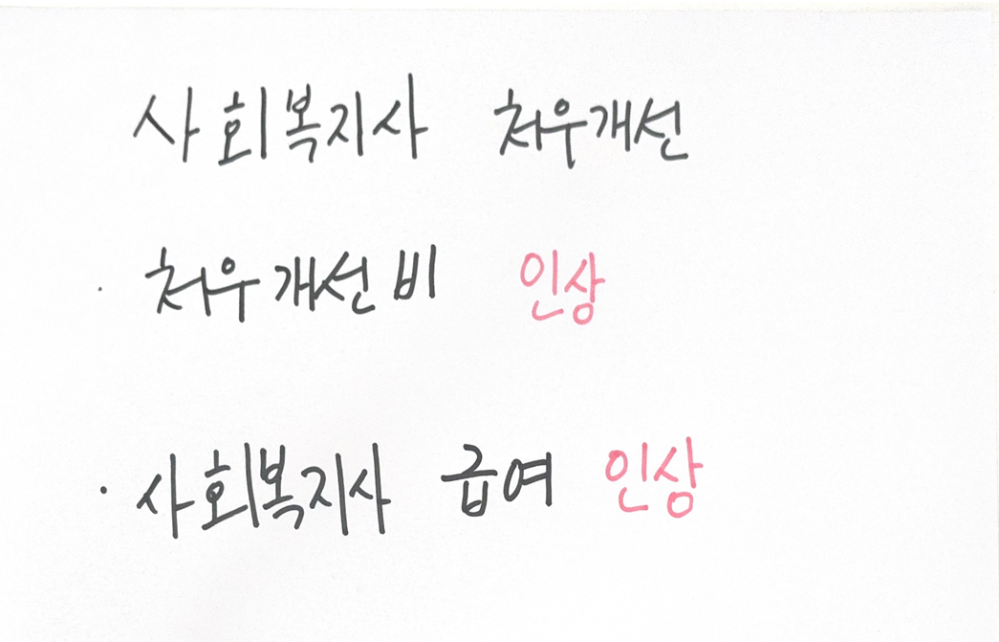 사회복지사 처우개선
· 처우개선비 인상
· 사회복지사 급여 인상